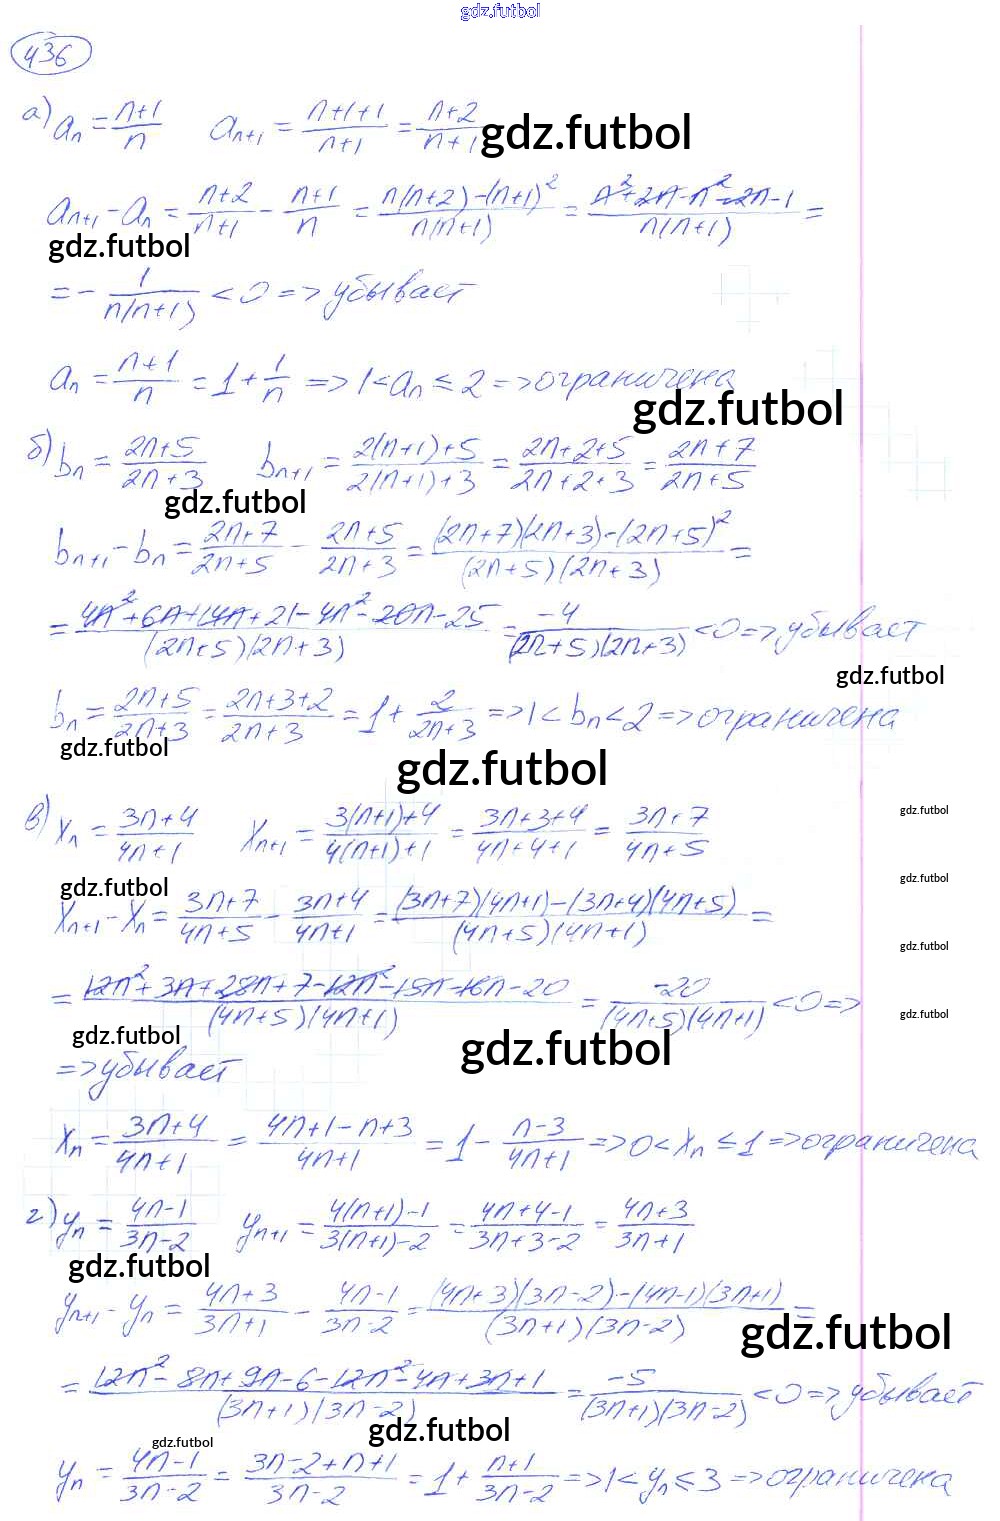 gdz.futbol
436
а) aₙ = (n+1)/n    aₙ₊₁ = (n+1+1)/(n+1) = (n+2)/(n+1) gdz.futbol
aₙ₊₁ - aₙ = (n+2)/(n+1) - (n+1)/n = (n(n+2)-(n+1)²)/(n(n+1)) = (n²+2n-n²-2n-1)/(n(n+1)) =
gdz.futbol
= - 1/(n(n+1)) < 0 => убывает
aₙ = (n+1)/n = 1 + 1/n => 1 < aₙ ≤ 2 => ограничена
gdz.futbol
б) bₙ = (2n+5)/(2n+3)    bₙ₊₁ = (2(n+1)+5)/(2(n+1)+3) = (2n+2+5)/(2n+2+3) = (2n+7)/(2n+5)
gdz.futbol
bₙ₊₁ - bₙ = (2n+7)/(2n+5) - (2n+5)/(2n+3) = ((2n+7)(2n+3)-(2n+5)²)/((2n+5)(2n+3)) =
= (4n²+6n+14n+21-4n²-20n-25)/((2n+5)(2n+3)) = -4/((2n+5)(2n+3)) < 0 => убывает
gdz.futbol
bₙ = (2n+5)/(2n+3) = (2n+3+2)/(2n+3) = 1 + 2/(2n+3) => 1 < bₙ < 2 => ограничена
gdz.futbol
gdz.futbol
в) xₙ = (3n+4)/(4n+1)    xₙ₊₁ = (3(n+1)+4)/(4(n+1)+1) = (3n+3+4)/(4n+4+1) = (3n+7)/(4n+5)
gdz.futbol
gdz.futbol
gdz.futbol
xₙ₊₁ - xₙ = (3n+7)/(4n+5) - (3n+4)/(4n+1) = ((3n+7)(4n+1)-(3n+4)(4n+5))/((4n+5)(4n+1)) =
gdz.futbol
= (12n²+3n+28n+7-12n²-15n-16n-20)/((4n+5)(4n+1)) = -20/((4n+5)(4n+1)) < 0 =>
gdz.futbol
gdz.futbol
gdz.futbol
=> убывает
xₙ = (3n+4)/(4n+1) = (4n+1-n+3)/(4n+1) = 1 - (n-3)/(4n+1) => 0 < xₙ ≤ 1 => ограничена
г) yₙ = (4n-1)/(3n-2)    yₙ₊₁ = (4(n+1)-1)/(3(n+1)-2) = (4n+4-1)/(3n+3-2) = (4n+3)/(3n+1)
gdz.futbol
yₙ₊₁ - yₙ = (4n+3)/(3n+1) - (4n-1)/(3n-2) = ((4n+3)(3n-2)-(4n-1)(3n+1))/((3n+1)(3n-2)) =
gdz.futbol
= (12n²-8n+9n-6-12n²-4n+3n+1)/((3n+1)(3n-2)) = -5/((3n+1)(3n-2)) < 0 => убывает
gdz.futbol
gdz.futbol
yₙ = (4n-1)/(3n-2) = (3n-2+n+1)/(3n-2) = 1 + (n+1)/(3n-2) => 1 < yₙ ≤ 3 => ограничена